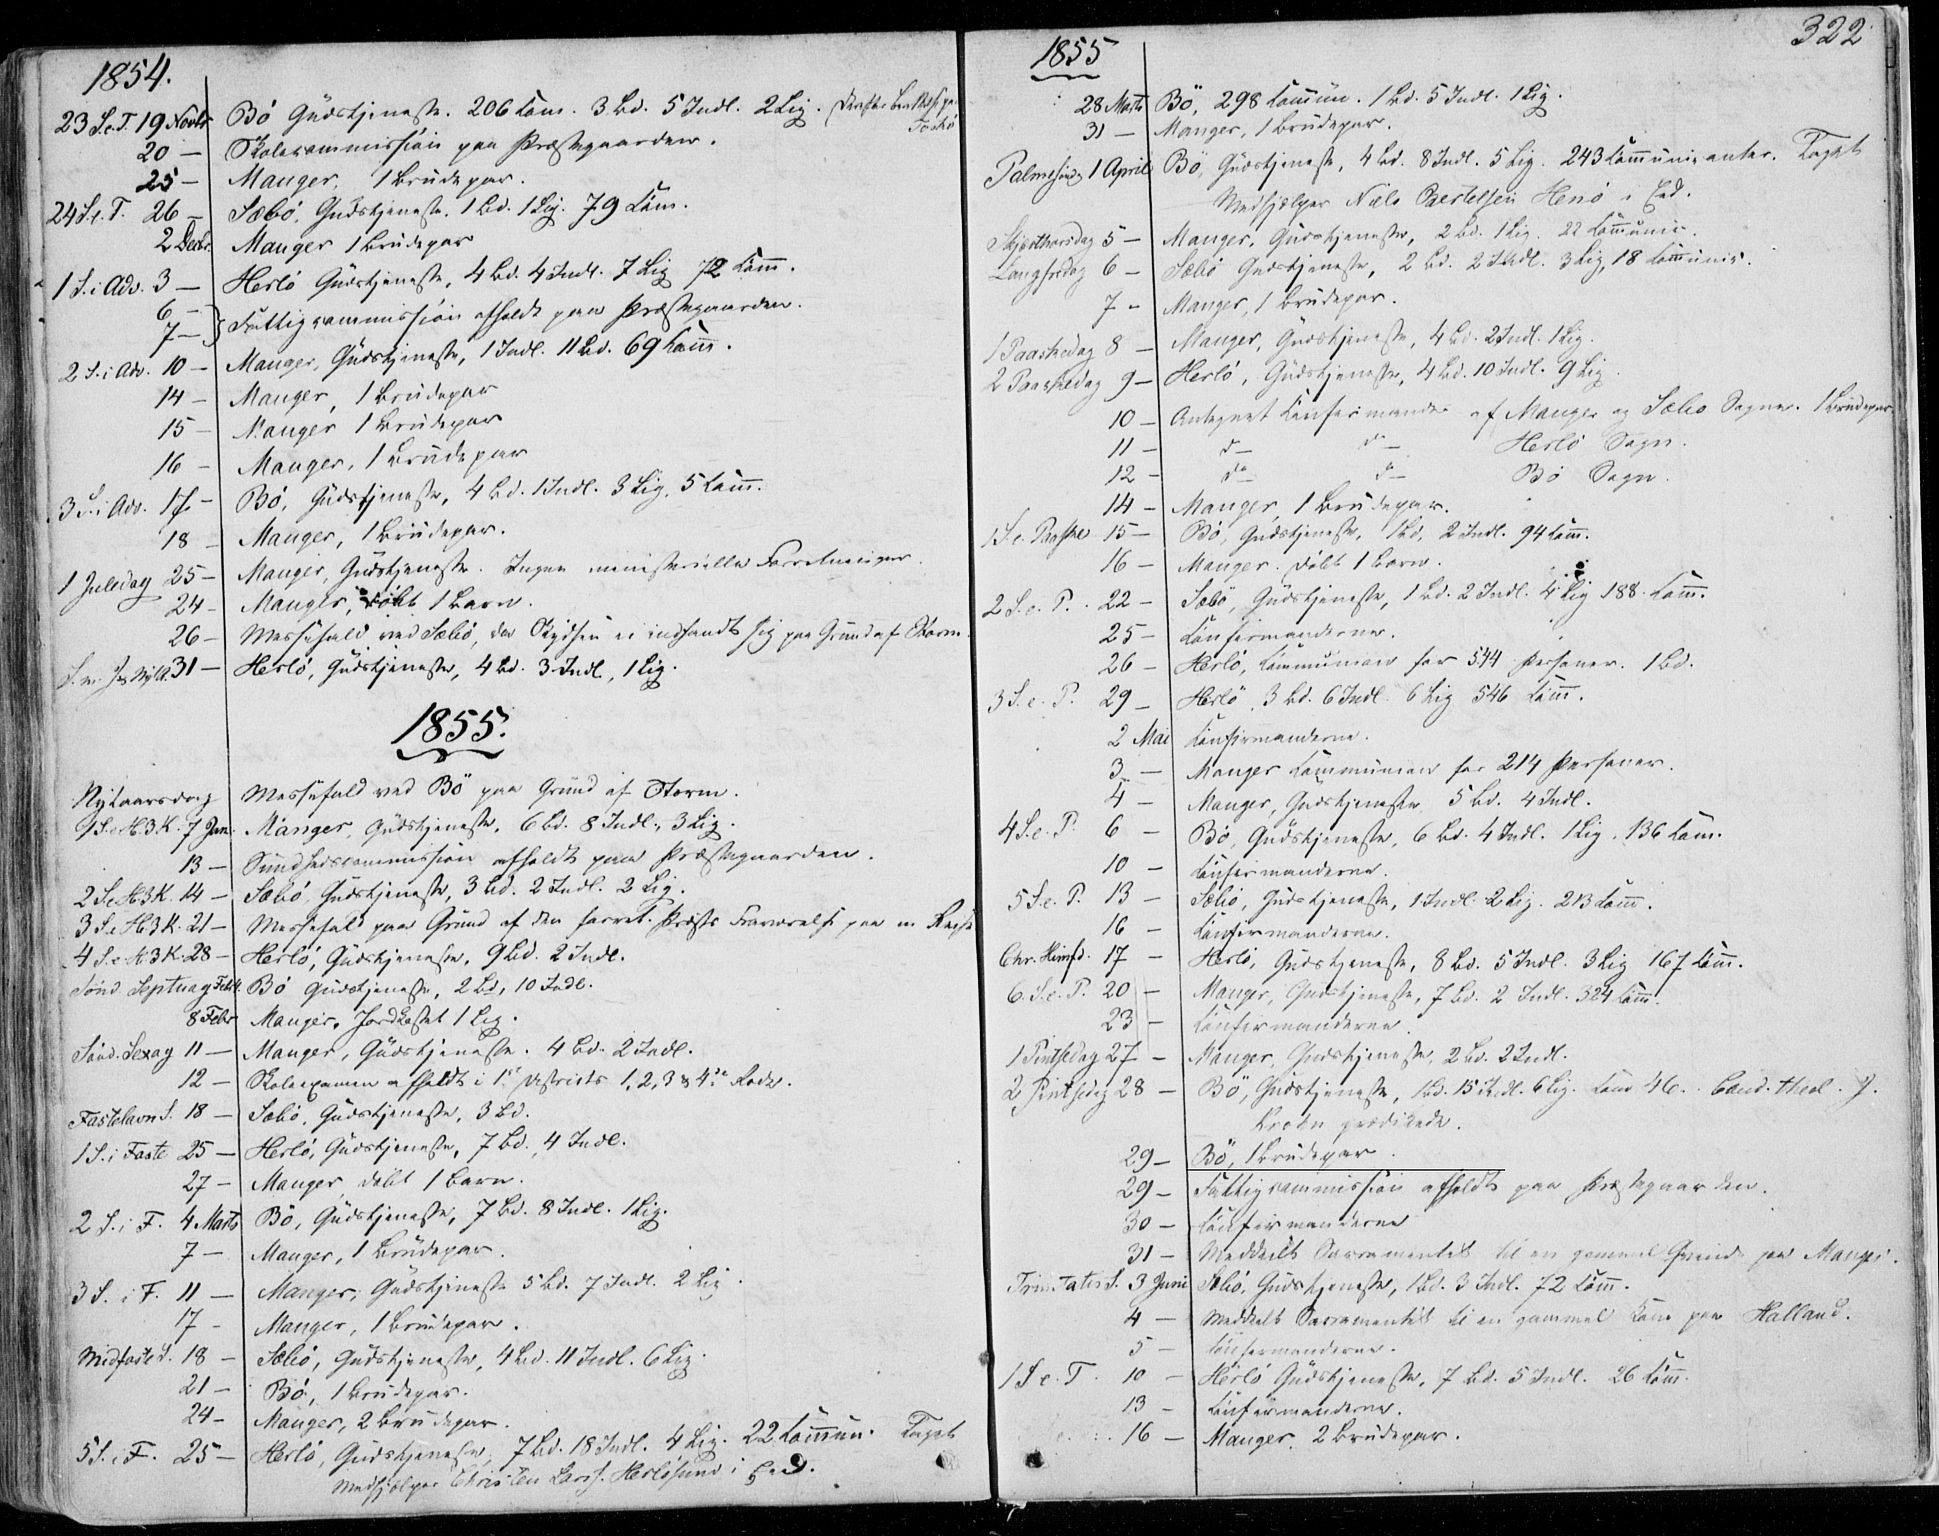 1854.
23 S.e.T. 19 Novbr Bö Gudstjeneste. 206 Com. 3 Bd. 5 Indl. 2 Lig.
20 — Skolecommission paa Præstegaarden.
25 — Manger, 1 Brudepar.
24 S.e.T. 26 — Sæbö, Gudstjeneste. 1 Bd. 1 Lig. 79 Com.
2 Decbr. Manger 1 Brudepar
1 S. i Adv. 3 — Herlö Gudstjeneste, 4 Bd. 4 Indl. 7 Lig 72 Com̄.
6 —
7 — } Fattigcommission afholdt paa Præstegaarden.
2 S. i Adv. 10 — Manger, Gudstjeneste, 1 Indl. 11 Bd. 69 Com̄.
14 — Manger, 1 Brudepar
15 — Manger 1 Brudepar
16 — Manger, 1 Brudepar
3 S. i Adv. 17 — Bö, Gudstjeneste, 4 Bd. 1 Indl. 3 Lig, 5 Com̄.
18 — Manger, 1 Brudepar.
1 Juledag 25 — Manger, Gudstjeneste. Ingen ministerielle Forretninger.
24 — Manger, döbt 1 Barn.
26 — Messefald ved Sæbö, da Skydsen ei indfandt sig paa Grund af Storm.
31 — Herlö, Gudstjeneste, 4 Bd. 3 Indl., 1 Lig.
1855.
Nytaarsdag Messefald ved Bö paa Grund af Storm.
1 S.e.H.3.K. 7 Jan. Manger, Gudstjeneste, 6 Bd. 8 Indl., 3 Lig.
13 — Sundhedscommission afholdt paa Præstegaarden.
2 S.e.H.3.K. 14 — Sæbö, Gudstjeneste, 3 Bd. 2 Indl. 2 Lig.
3 S.e.H.3.K. 21 — Messefald paa Grund af den forret. Præsts Fraværelse paa en Reise
4 S.e.H.3.K. 28 — Herlö, Gudstjeneste, 9 Bd. 2 Indl.
Sönd. Septuag Bö Gudstjeneste, 2 Bd, 10 Indl.
8 Febr Manger, Jordkastet 1 Lig.
Sönd. Sexag 11 — Manger, Gudstjeneste. 4 Bd. 2 Indl.
12 — Skoleexamen afholdt i 1st Districts 1, 2, 3 & 4de Rode.
Fastelavns S. 18 — Sæbö, Gudstjeneste, 3 Bd.
1 S. i Faste 25 — Herlö, Gudstjeneste, 7 Bd., 4 Indl.
27 — Manger döbt 1 Barn.
2 S. i F. 4 Marts Bö, Gudstjeneste, 7 Bd. 8 Indl. 1 Lig.
7 — Manger, 1 Brudepar.
3 S. i F. 11 — Manger, Gudstjeneste 5 Bd. 7 Indl. 2 Lig.
17 — Manger, 1 Brudepar.
Midfaste S. 18 — Sæbö, Gudstjeneste, 4 Bd. 11 Indl. 6 Lig.
21 — Bö, 1 Brudepar.
24 — Manger, 2 Brudepar.
5 S. i F. 25 — Herlö, Gudstjeneste, 7 Bd. 18 Indl. 4 Lig. 22 Com̄un. Taget
Medhjælper Christen Larss. Herlösund i Eed.
322
1855
28 Marts Bö, 298 Com̄un. 1 Bd. 5 Indl. 1 Lig.
31 — Manger, 1 Brudepar.
Palmesönd. 1 April Bö, Gudstjeneste, 4 Bd. 8 Indl. 5 Lig. 243 Com̄unicanter. Taget
Medhjælper Niels Bertelsen Henö i Eed.
Skjærthorsdag 5 — Manger, Gudstjeneste, 2 Bd. 1 Lig. 22 Com̄unic.
Langfredag 6 — Sæbö Gudstjeneste, 2 Bd. 2 Indl. 3 Lig, 18 Com̄unic.
7 — Manger, 1 Brudepar.
1 Paaskedag 8 — Manger, Gudstjeneste, 4 Bd. 2 Indl. 1 Lig.
2 Paaskedag 9 — Herlö, Gudstjeneste, 4 Bd. 10 Indl. 9 Lig.
10 — Antegnet Confirmander af Manger og Sæbö Sogne. 1 Brudepar.
11 — do — do — Herlö Sogn.
12 — do — do — Bö Sogn.
14 — Manger, 1 Brudepar.
1 S.e. Paaske 15 — Bö, Gudstjeneste, 1 Bd, 2 Indl. 94 Com̄.
16 — Manger. döbt 1 Barn.
2 S.e.P. 22 — Sæbö, Gudstjeneste, 1 Bd. 2 Indl. 4 Lig 188 Com̄.
25 — Confirmanderne.
26 — Herlö, Communion for 544 Personer. 1 Bd.
3 S.e.P. 29 — Herlö, 3 Bd. 6 Indl. 6 Lig 546 Com̄.
2 Mai Confirmanderne.
3 — Manger Communion for 214 Personer.
4 — Manger, Gudstjeneste 5 Bd. 4 Indl.
4 S.e.P. 6 — Bö, Gudstjeneste, 6 Bd. 4 Indl. 1 Lig. 136 Com.
10 — Confirmanderne.
5 S.e.P. 13 — Sæbö, Gudstjeneste, 1 Indl. 2 Lig. 213 Com̄.
16 — Confirmanderne.
Chr. Himfd. 17 — Herlö, Gudstjeneste, 8 Bd. 5 Indl. 3 Lig 167 Com̄.
6. S.e.P. 20 — Manger, Gudstjeneste, 7 Bd. 2 Indl. 324 Com̄.
23 — Confirmanderne.
1 Pintsedag 27 — Manger, Gudstjeneste, 2 Bd. 2 Indl.
2 Pintsedag 28 — Bö, Gudstjeneste, 1 Bd. 15 Indl. 6 Lig. Com 46. Cand. theol. J.
prædikede.
29 — Bö, 1 Brudepar.
29 — Fattigcommission afholdt paa Præstegaarden.
30 — Confirmanderne
31 — Meddeelt Sacramentet til en gammel Qvinde paa Manger.
Trinitatis S. 3 Juni Sæbö, Gudstjeneste, 1 Bd. 3 Indl. 72 Com̄.
4 — Meddeelt Sacramentet til en gammel Kone paa Halland.
5 — Confirmanderne.
1 S.e.T. 10 — Herlö Gudstjeneste, 7 Bd. 5 Indl. 26 Com̄.
13 — Confirmanderne.
16 — Manger, 2 Brudepar.